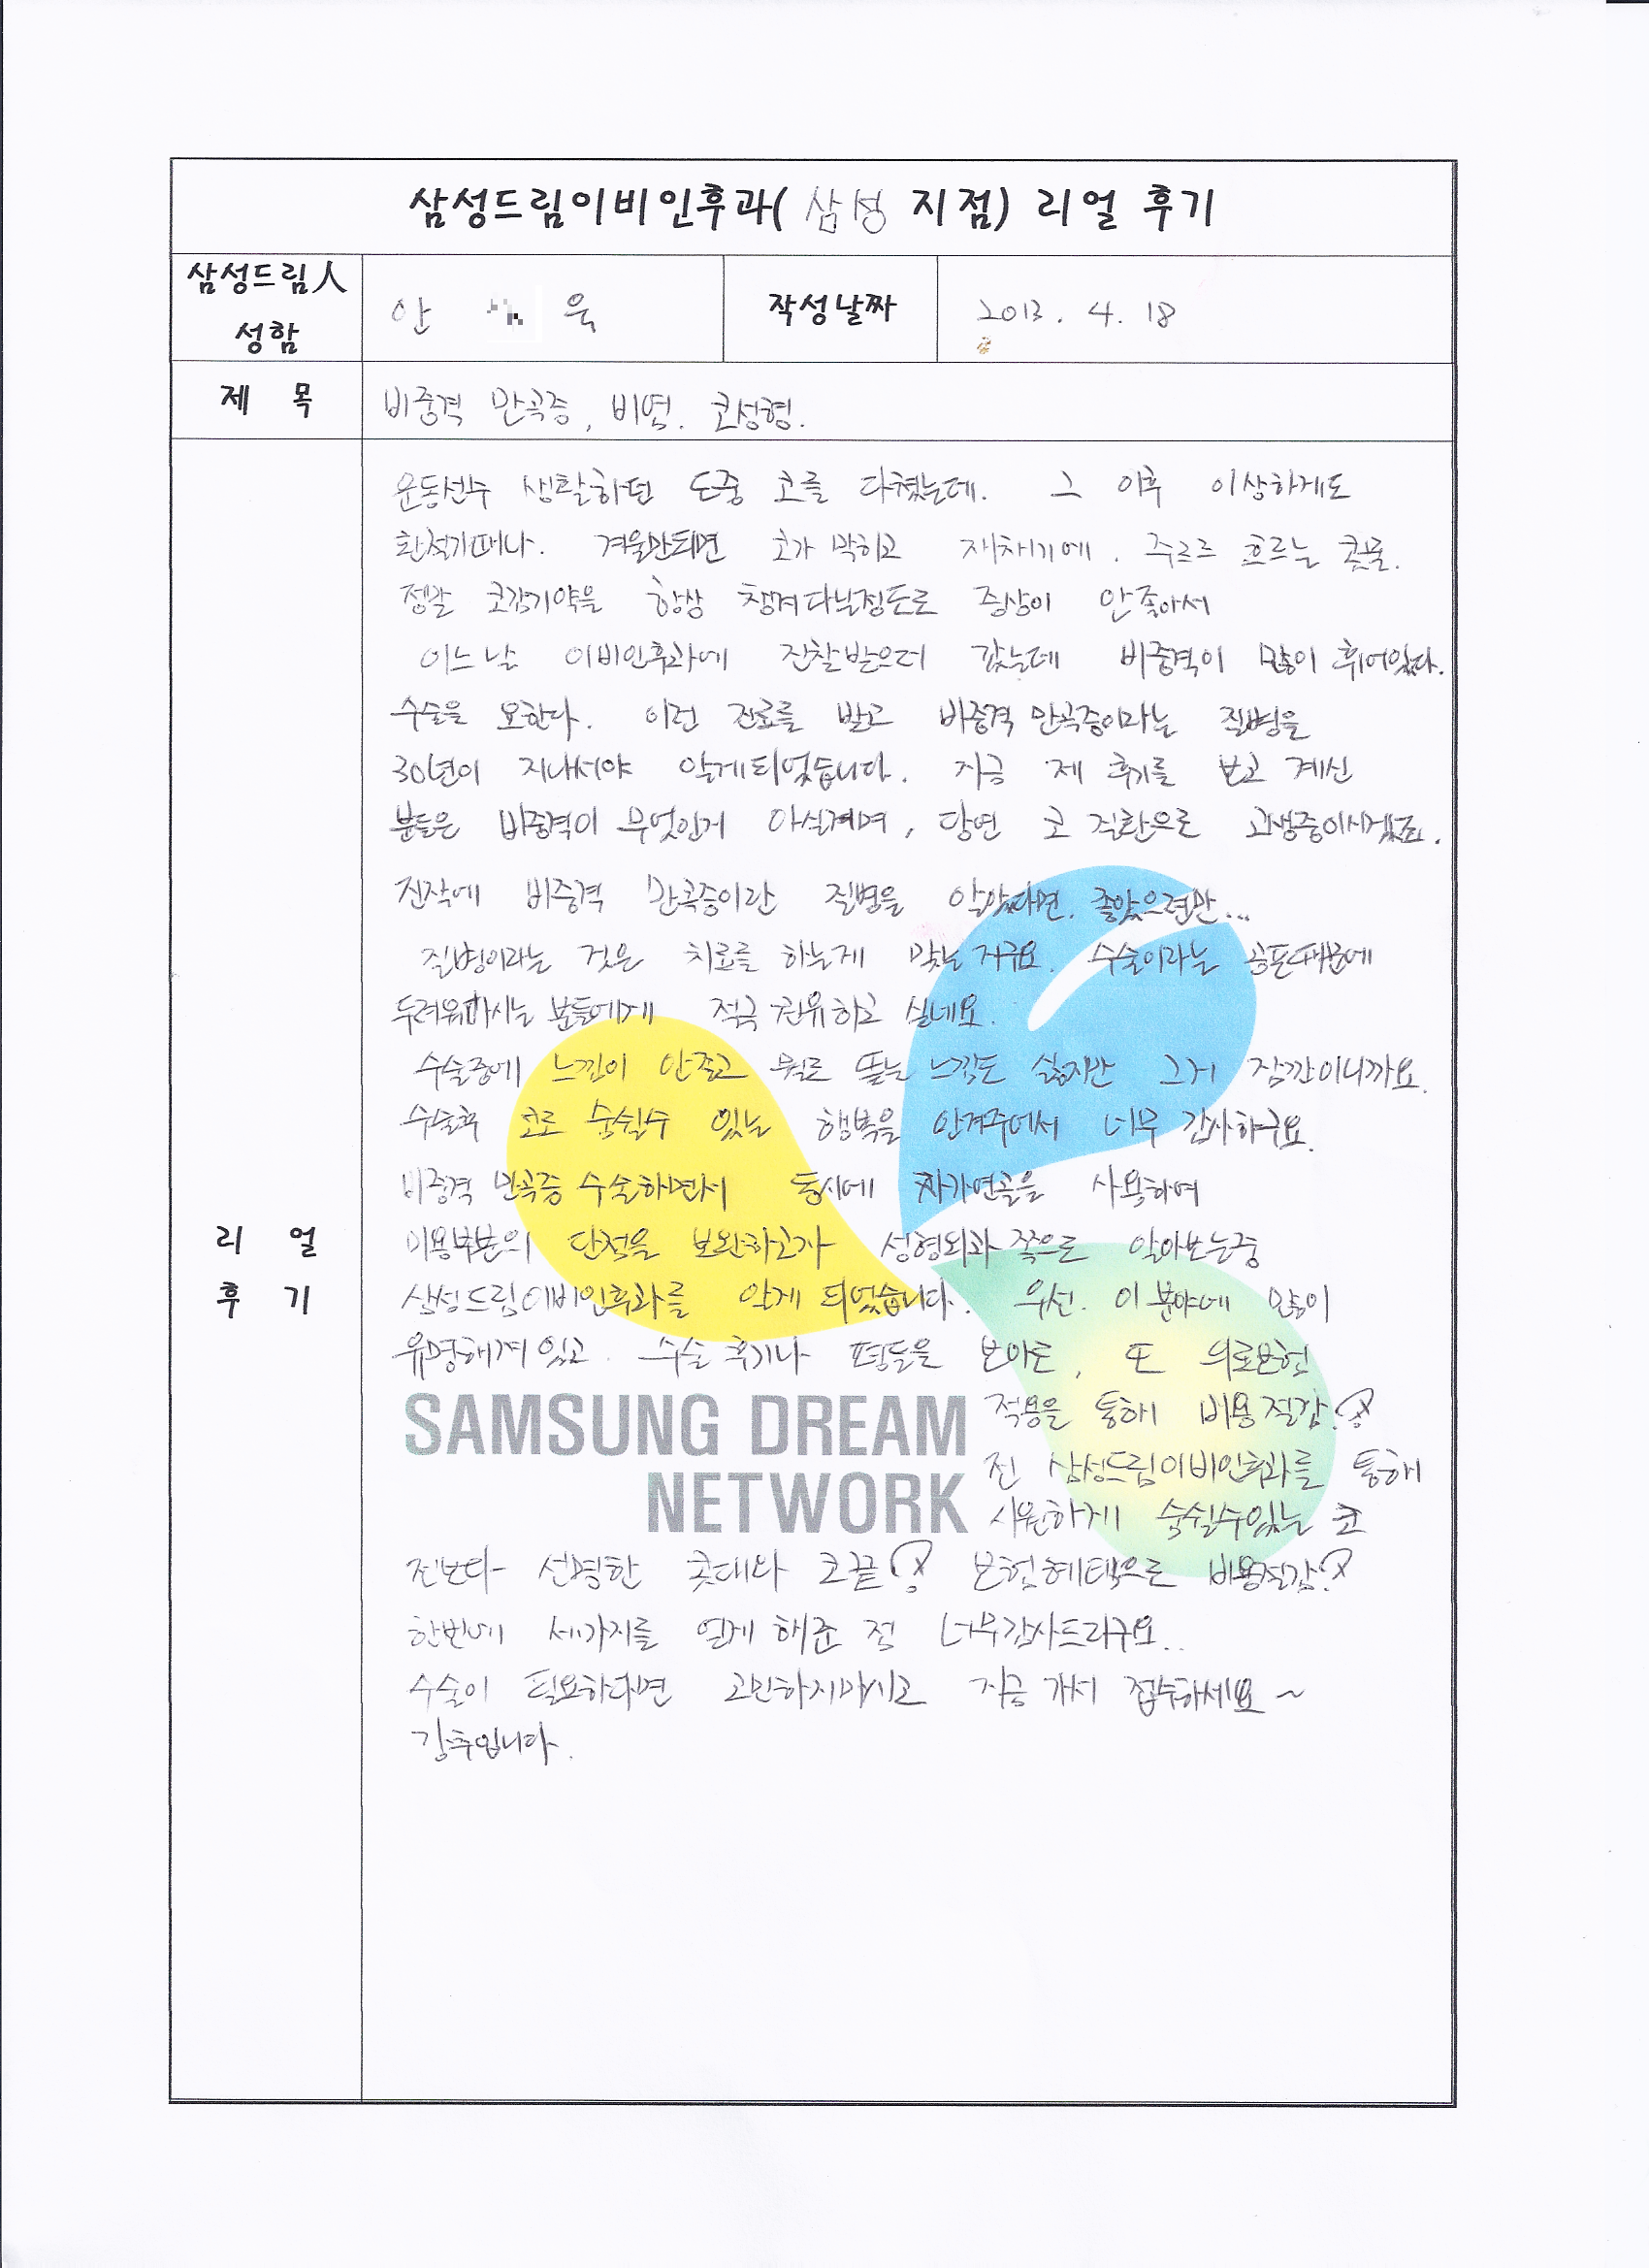 삼성드림이비인후과( 삼성 지점) 리얼 후기
삼성드림人
성함
안 욱
작성날짜
2013. 4. 18
제 목
비중격 만곡증, 비염. 코성형.
운동선수 생활하던 도중 코를 다쳤는데. 그 이후 이상하게도
환절기때나. 겨울만되면 코가 막히고 재채기에. 주르르 흐르는 콧물.
정말 코감기약을 항상 챙겨다닐정도로 증상이 안좋아서
어느날 이비인후과에 진찰받으러 갔는데 비중격이 많이 휘어있다.
수술을 요한다. 이런 진료를 받고 비중격 만곡증이라는 질병을
30년이 지나서야 알게되었습니다. 지금 제 후기를 보고 계신
분들은 비중격이 무엇인지 아실꺼며, 당연 코 질환으로 고생중이시겠죠.
진작에 비중격 만곡증이란 질병을 알았다면. 좋았으련만...
질병이라는 것은 치료를 하는게 맞는거구요. 수술이라는 공포때문에
두려워마시는 분들에게 적극 권유하고 싶네요.
수술중에 느낌이 안좋고 뭐로 뜯는 느낌도 싫지만 그거 잠깐이니까요.
수술후 코로 숨쉴수 있는 행복을 안겨주어서 너무 감사하구요.
비중격 만곡증 수술하면서 동시에 자가연골을 사용하여
미용부분의 단점을 보완하고자 성형외과 쪽으로 알아보는중
삼성드림이비인후과를 알게 되었습니다. 우선. 이 분야에 많이
유명해져있고. 수술 후기나 평들을 보아도, 또 의료보험
SAMSUNG DREAM
NETWORK
적용을 통해 비용절감!
전 삼성드림이비인후과를 통해
시원하게 숨쉴수있는 코
전보다 선명한 콧대와 코끝! 보험혜택으로 비용절감!
한번에 세가지를 얻게 해준 점 너무감사드리구요..
수술이 필요하다면 고민하지마시고 지금 가서 접수하세요~
강추입니다.